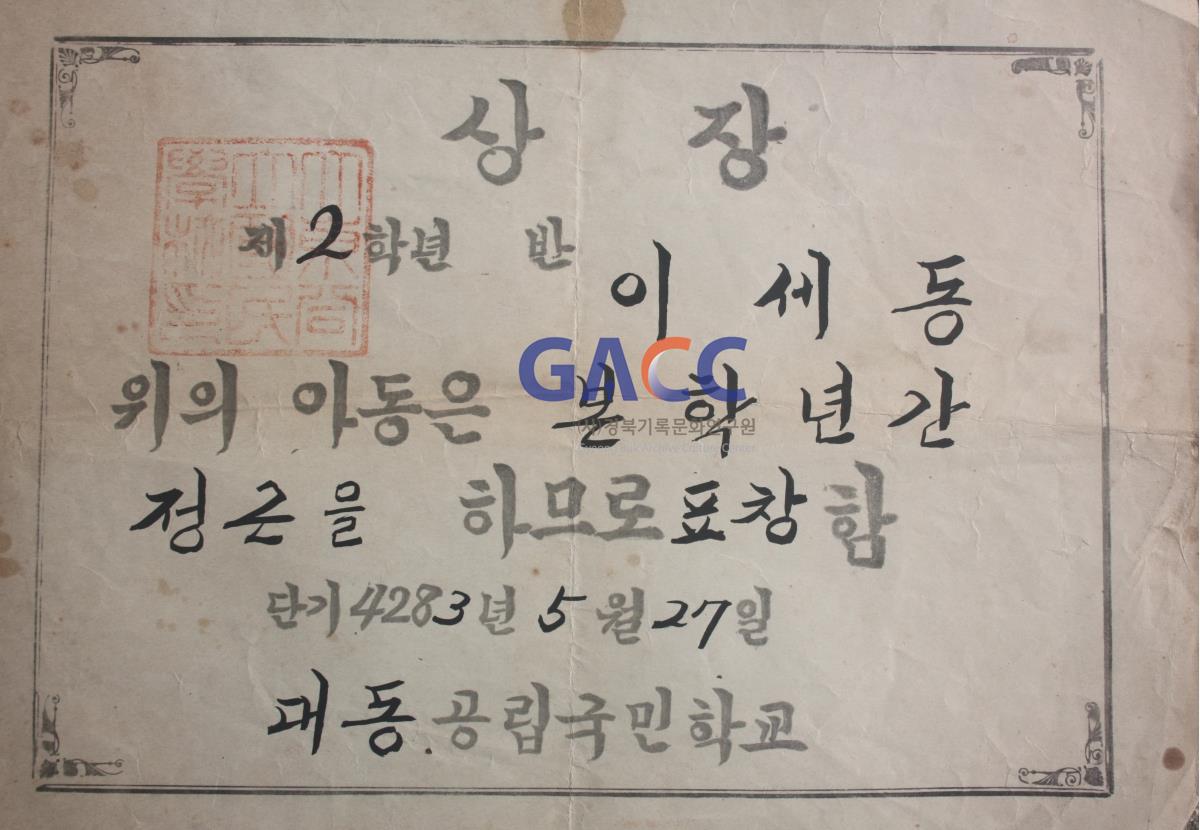 상 장
제2학년 반
이 세 동
위의 아동은 본 학 년 간
정근을 하므로 표창함
단기 4283년 5월 27일
대동공립국민학교
GACC
(사)경북기록문화연구원